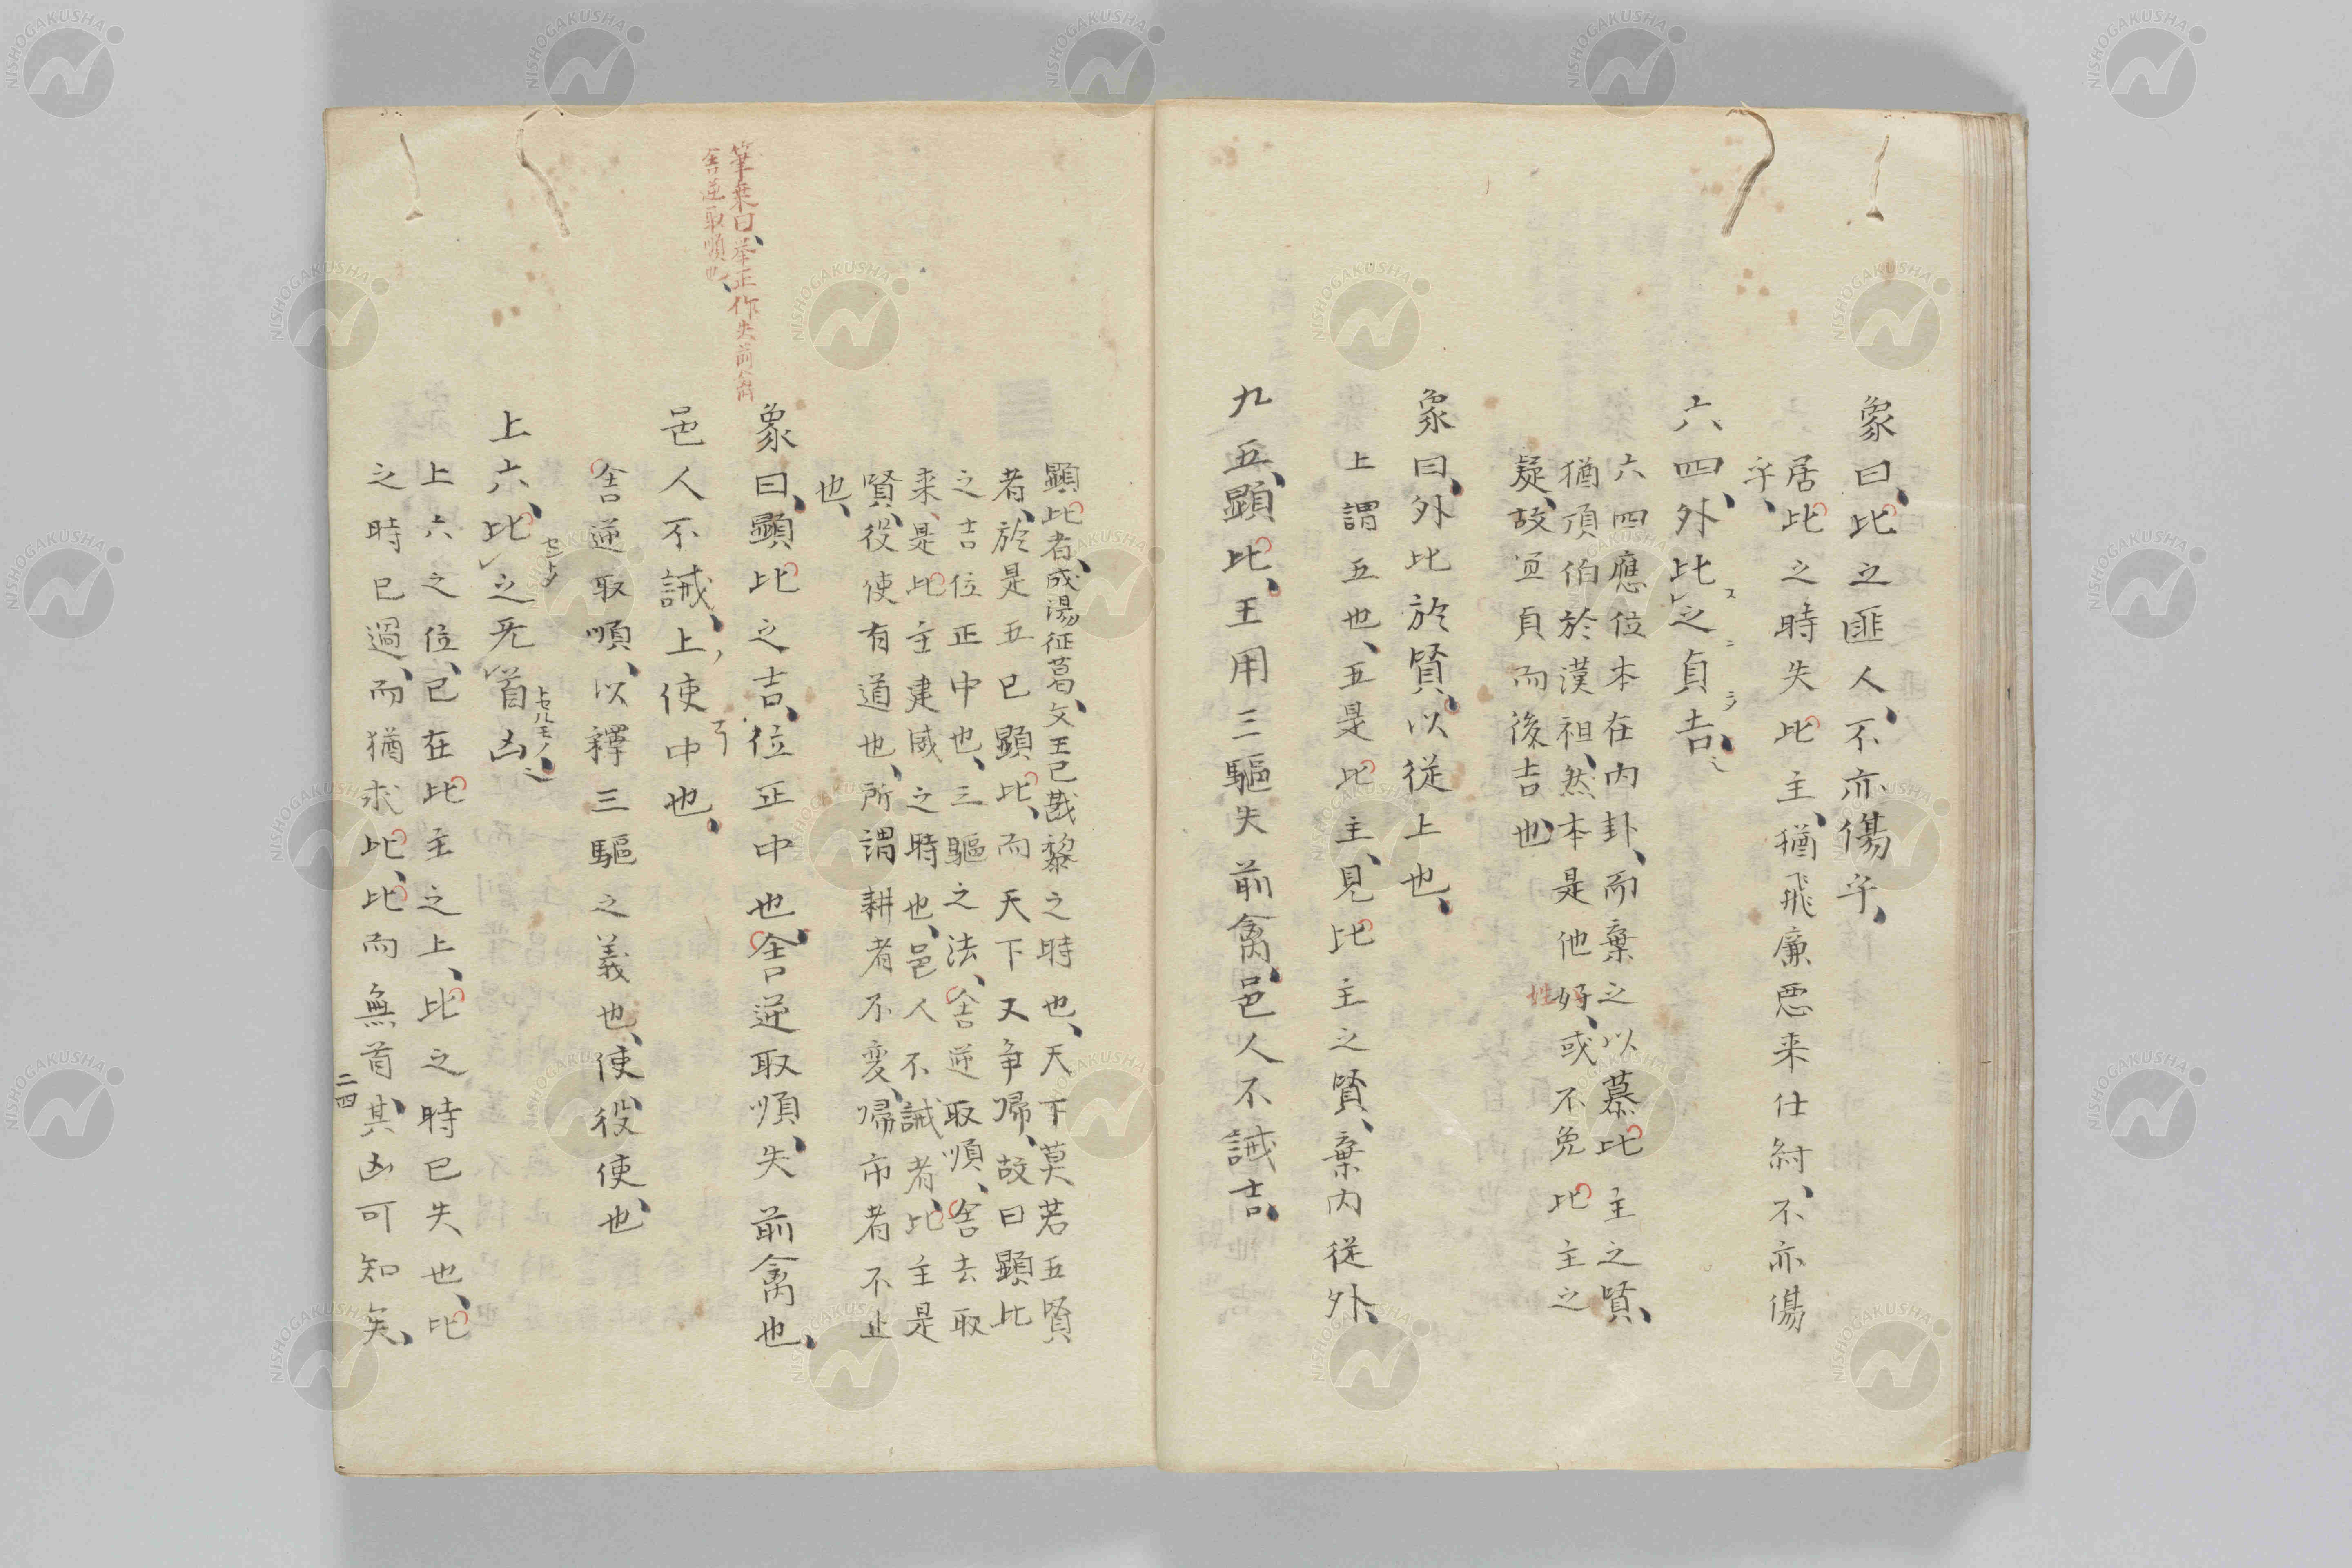 象曰、比之匪人、不亦傷乎、
居比之時失比主、猶飛廉悪来仕紂、不亦傷
乎、
六四、外比之貞吉、
六四應位本在内卦、而棄之以慕比主之賢、
猶項伯於漢祖、然本是他姓好、或不免比主之
疑、故宜貞而後吉也、
象曰、外比於賢、以従上也、
上謂五也、五是比主、見比主之賢、棄内従外、
九五、顕比、王用三驅失前禽、邑人不誡吉、
顕比者、成湯征葛、文王已戡黎之時也、天下莫若五賢
者、於是五已顕比、而天下又争帰、故曰顕比
之吉位正中也、三驅之法、舎逆取順、舎去取
来、是比主建威之時也、邑人不誡者、比主是
賢、役使有道也、所謂耕者不変、帰市者不止
也、
筆乗曰、挙正作失前禽
舎逆取順也、
象曰、顕比之吉、位正中也、舎逆取順、失前禽也、
邑人不誡、上使中也、
舎逆取順、以釋三驅之義也、使役使也、
上六、比之无首凶、
セントヒルモノ
上六之位、已在比主之上、比之時已失也、比
之時已過、而猶求比、比而無首、其凶可知矣、
二四
NISHOGAKUSHA